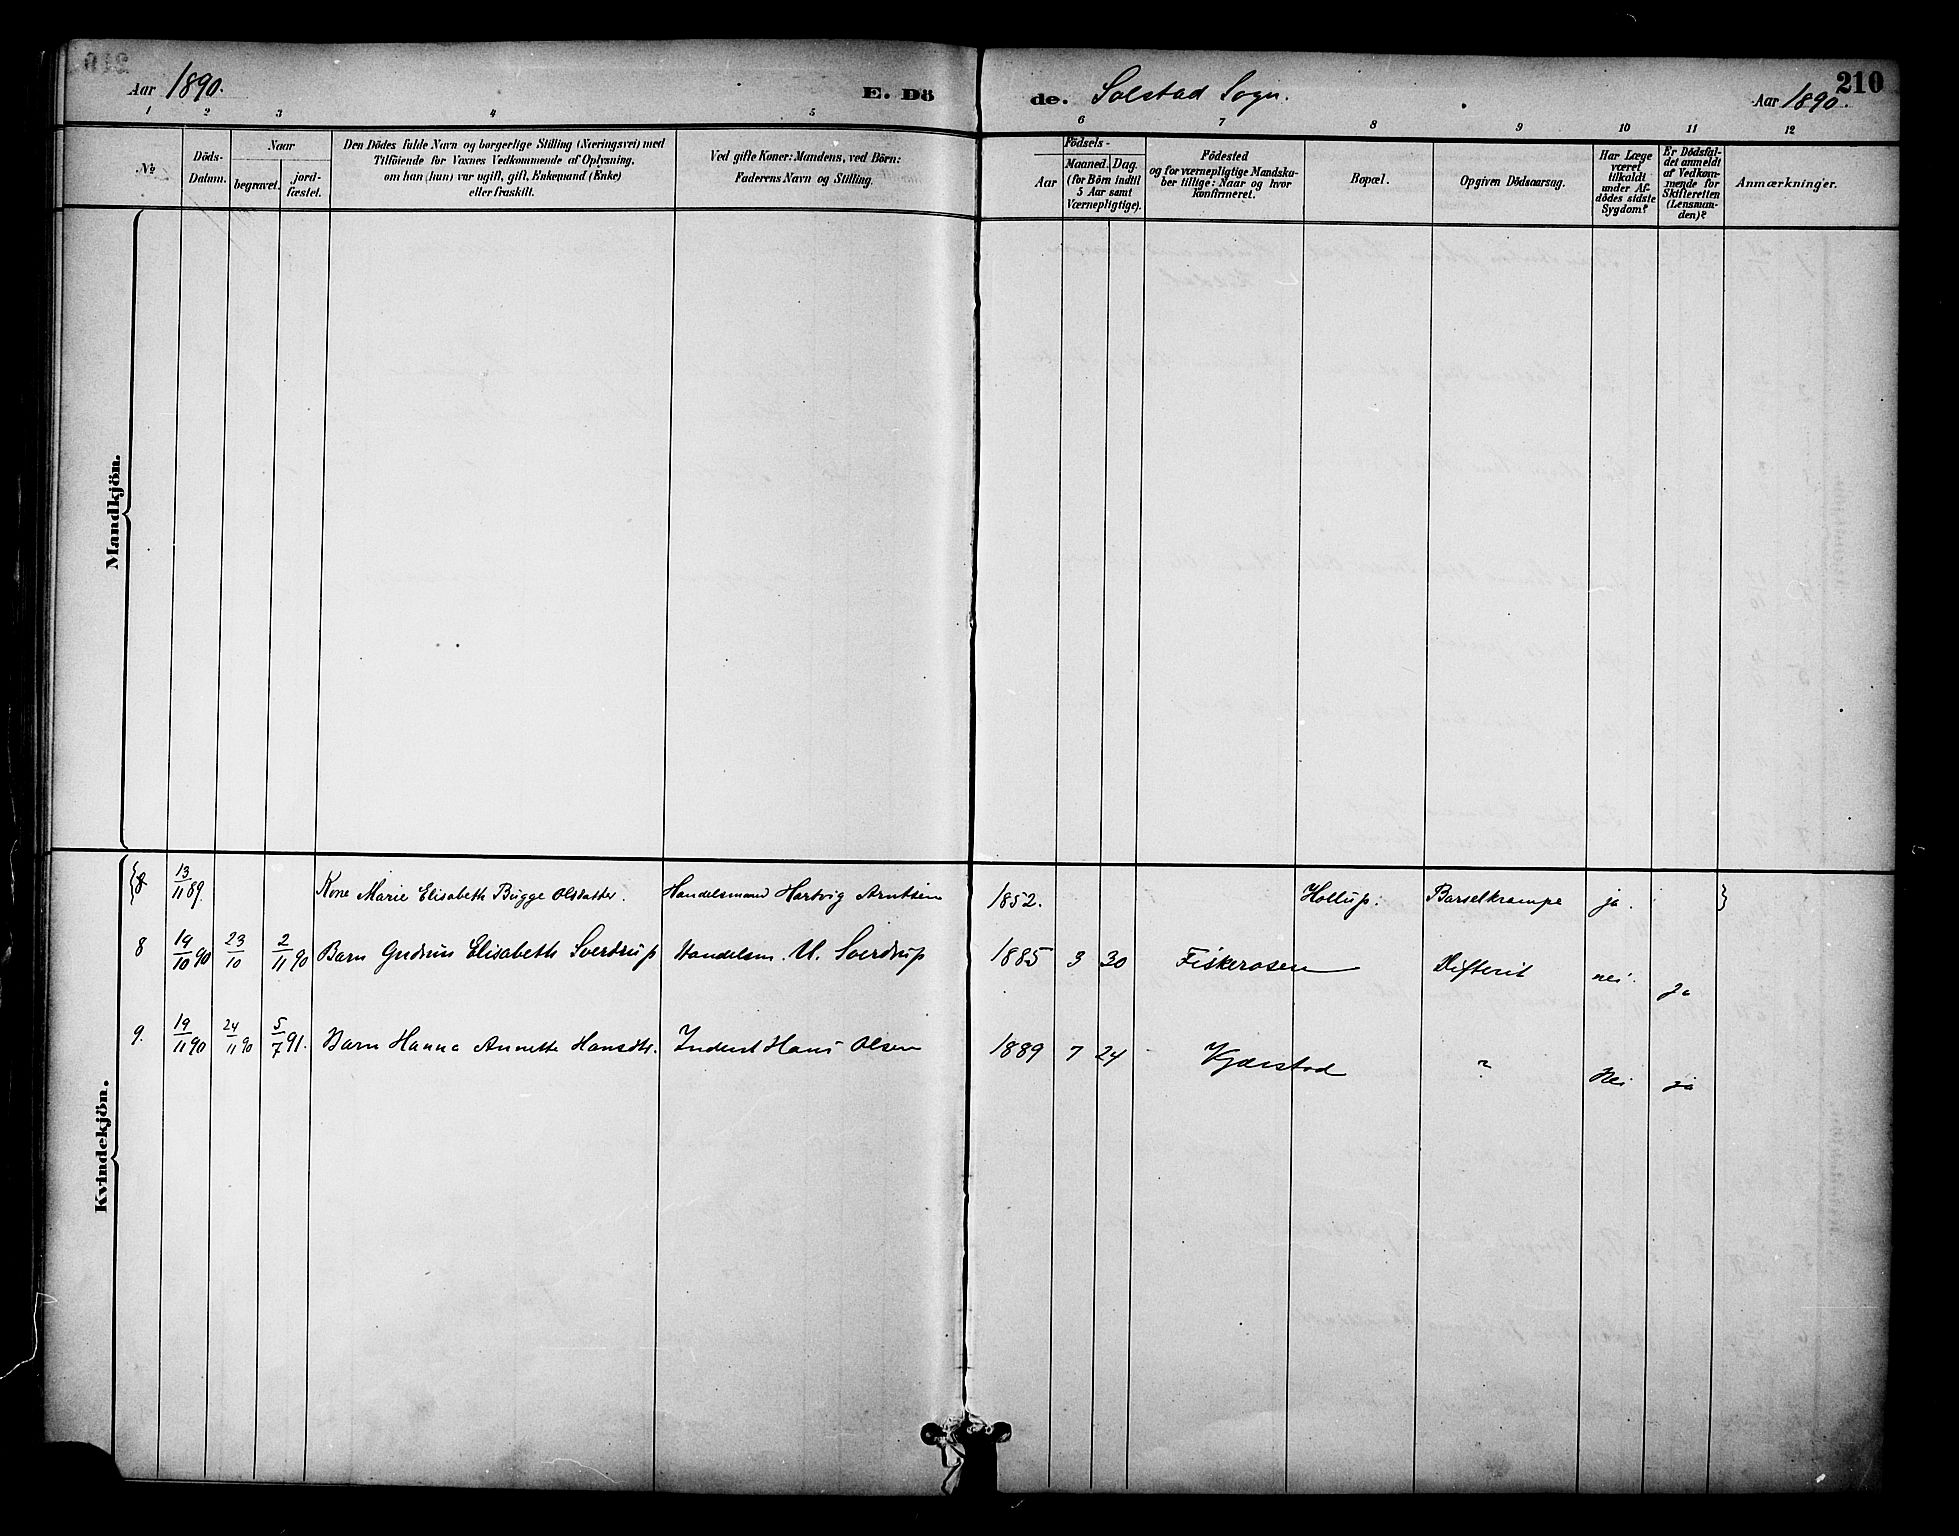 Aar 1890. E. Dö
de. Solstad Sogn. Aar 1890. 210
1 2 3 4 5 6 7 8 9 10 11 12
No
Döds-Datum.
Naar
begravet.
jord-fæstet.
Den Dödes fulde Navn og borgerlige Stilling (Næringsvei) med
Tilföiende for Voxnes Vedkommende af Oplysning,
om han (hun) var ugift, gift, Enkemand (Enke)
eller fraskilt.
Ved gifte Koner: Mandens, ved Börn:
Faderens Navn og Stilling.
Födsels-
Aar
Maaned. Dag.
(for Börn indtil
5 Aar samt
Værnepligtige).
Födested
og for værnepligtige Mandska-
ber tillige: Naar og hvor
konfirmeret.
Bopæl.
Opgiven Dödsaarsag.
Har Læge
været
tilkaldt
under Af-
dödes sidste
Sygdom?
Er Dödsfal-
det anmeldt
af Vedkom-
mende for
Skifteretten
(Lensman-
den)?
Anmærkninger.
Mandkjön.
Kvindekjön.
{8 13/11 89. Kone Marie Elisabeth Bugge Olsdatter. Handelsmand Hartvig Arntsen 1852. Hollup: Barselkrampe ja. }
8 19/10 90 23/10 2/11 90 Barn Gudrun Elisabeth Sverdrup Handelsm. U. Sverdrup 1885 3 30 Fiskerosen Difterit nei. ja
9. 19/11 90 24/11 90 5/7 91. Barn Hanna Annette Hansdtr. Inderst Hans Olsen 1889 7 24 Kjærstad ? Nei ja